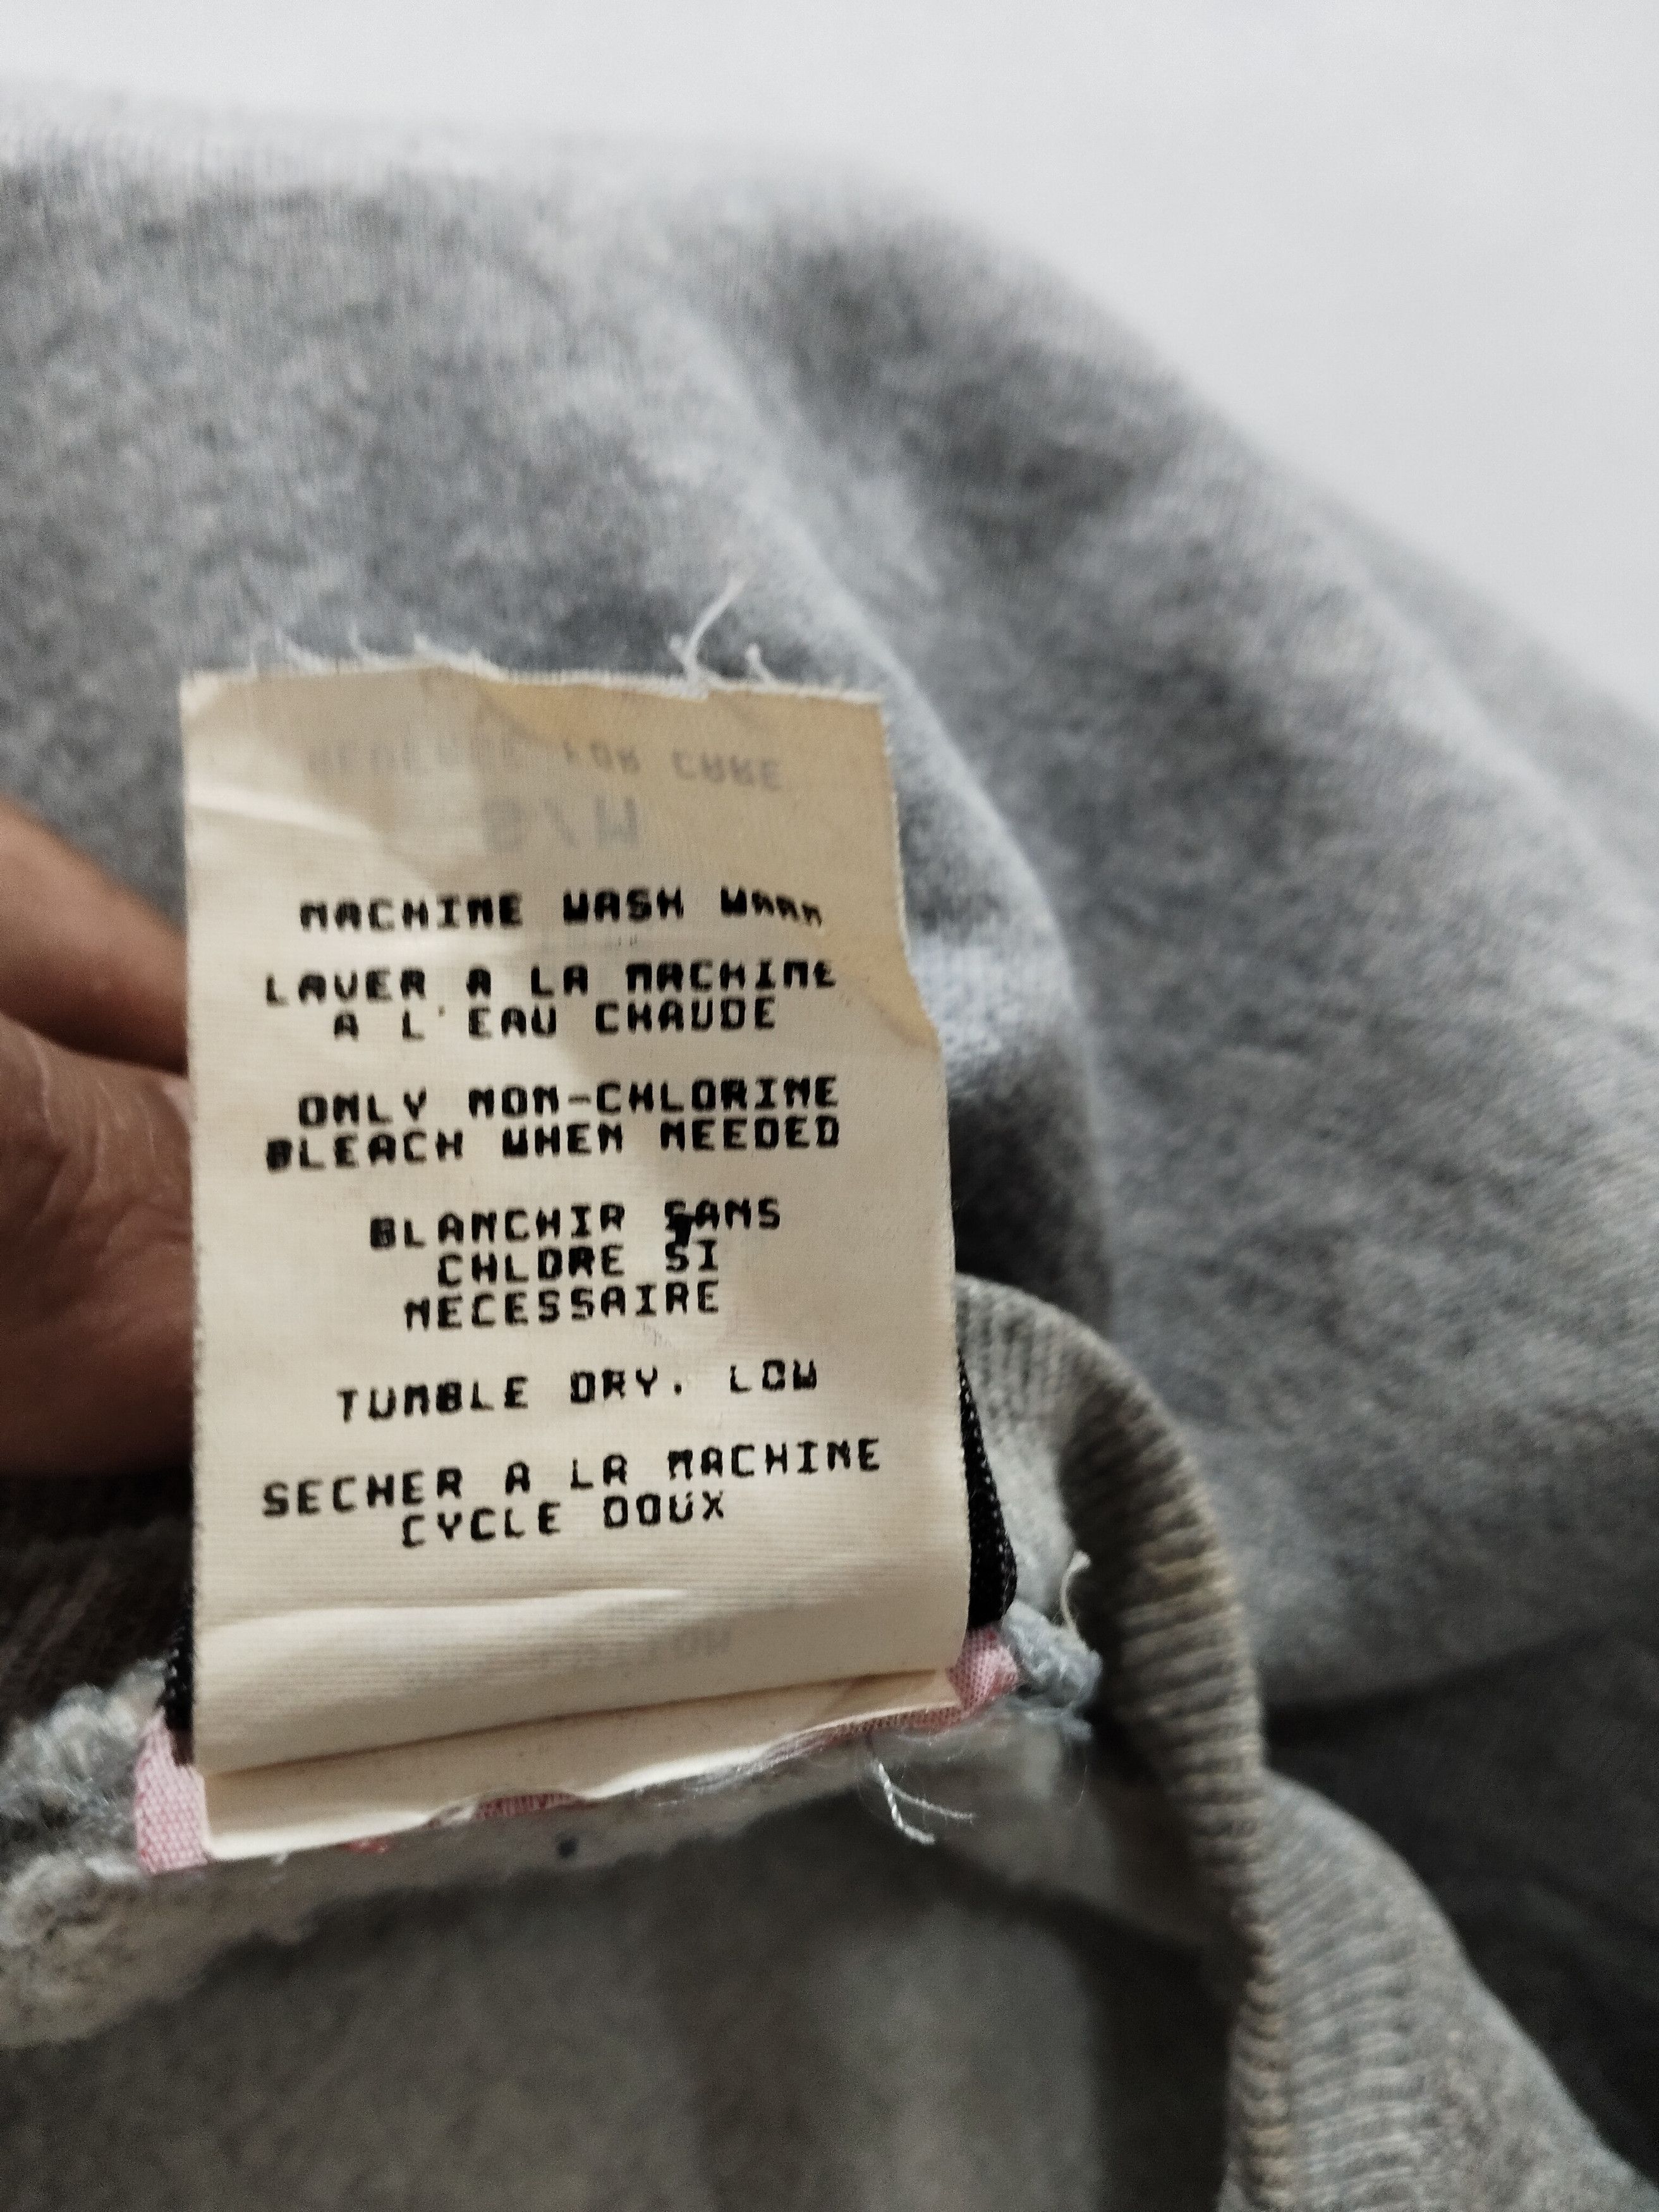 MACHINE WASH WARM
LAVER A LA MACHINE
A L'EAU CHAUDE
ONLY NON-CHLORINE
BLEACH WHEN NEEDED
BLANCHIR SANS
CHLORE SI
NECESSAIRE
TUMBLE DRY. LOW
SECHER A LA MACHINE
CYCLE DOUX